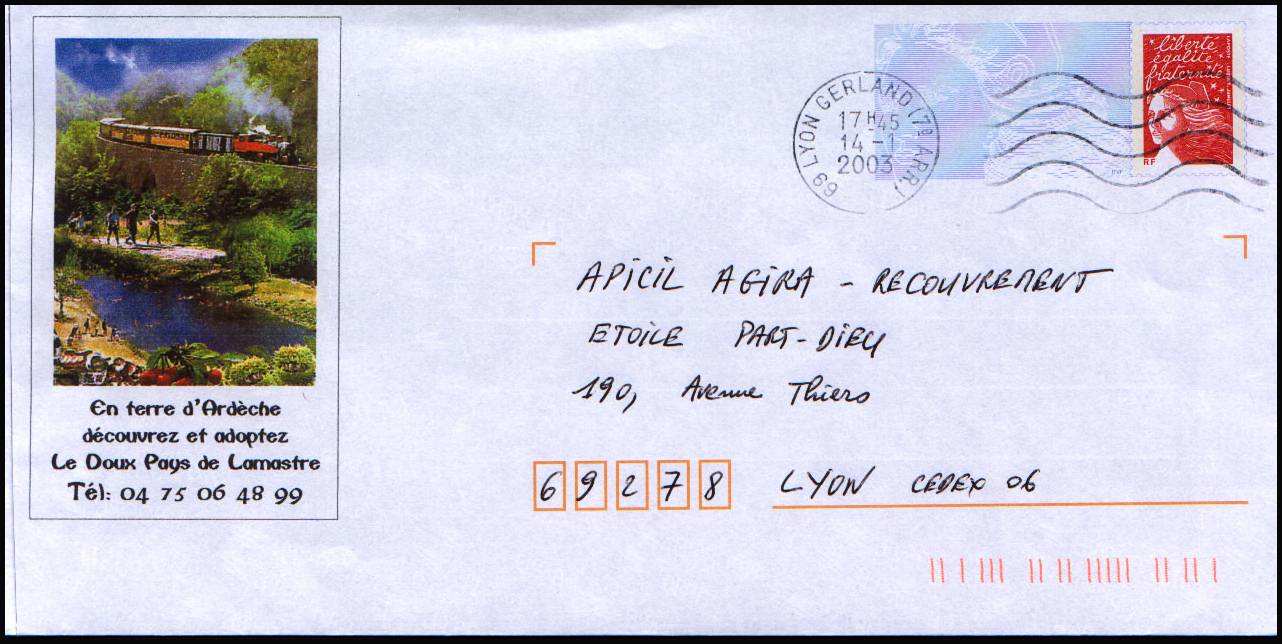 En terre d'Ardèche
découvrez et adoptez
Le Doux Pays de Lamastre
Tél: 04 75 06 48 99
69 LYON GERLAND (7e ARR.)
17H45
14-1
2003
liberté
égalité
fraternité
RF
APICIL AGIRA - RECOUVREMENT
ETOILE PART-DIEU
190, Avenue Thiers
69278 LYON CEDEX 06